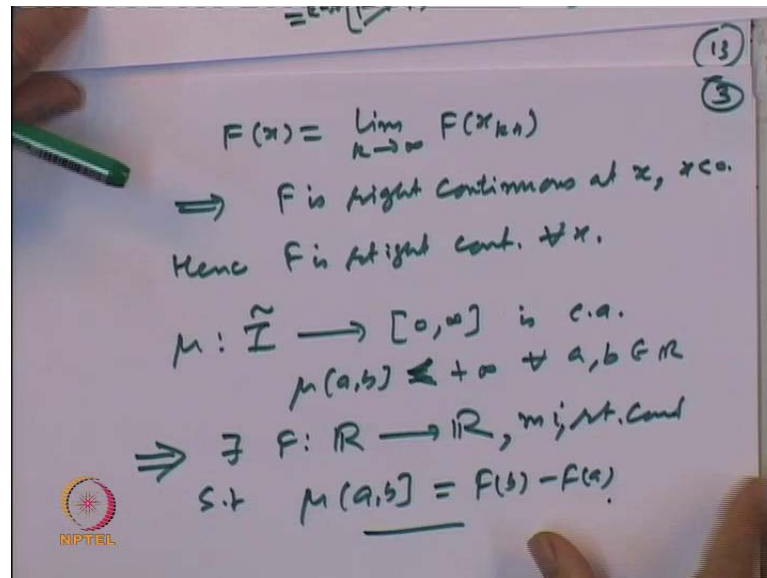 (13)
(3)
F(x) = lim F(x_{kn})
k→∞
⟹ F is right continuous at x, x<0.
Henc F is right cont. ∀x.
μ : Ĩ ⟶ [0,∞] is c.a.
μ(a,b] < +∞ ∀ a,b ∈ ℝ
⟹ ∃ F: ℝ ⟶ ℝ, m.i, rt. cont
s.t μ(a,b] = F(b) − F(a).
NPTEL